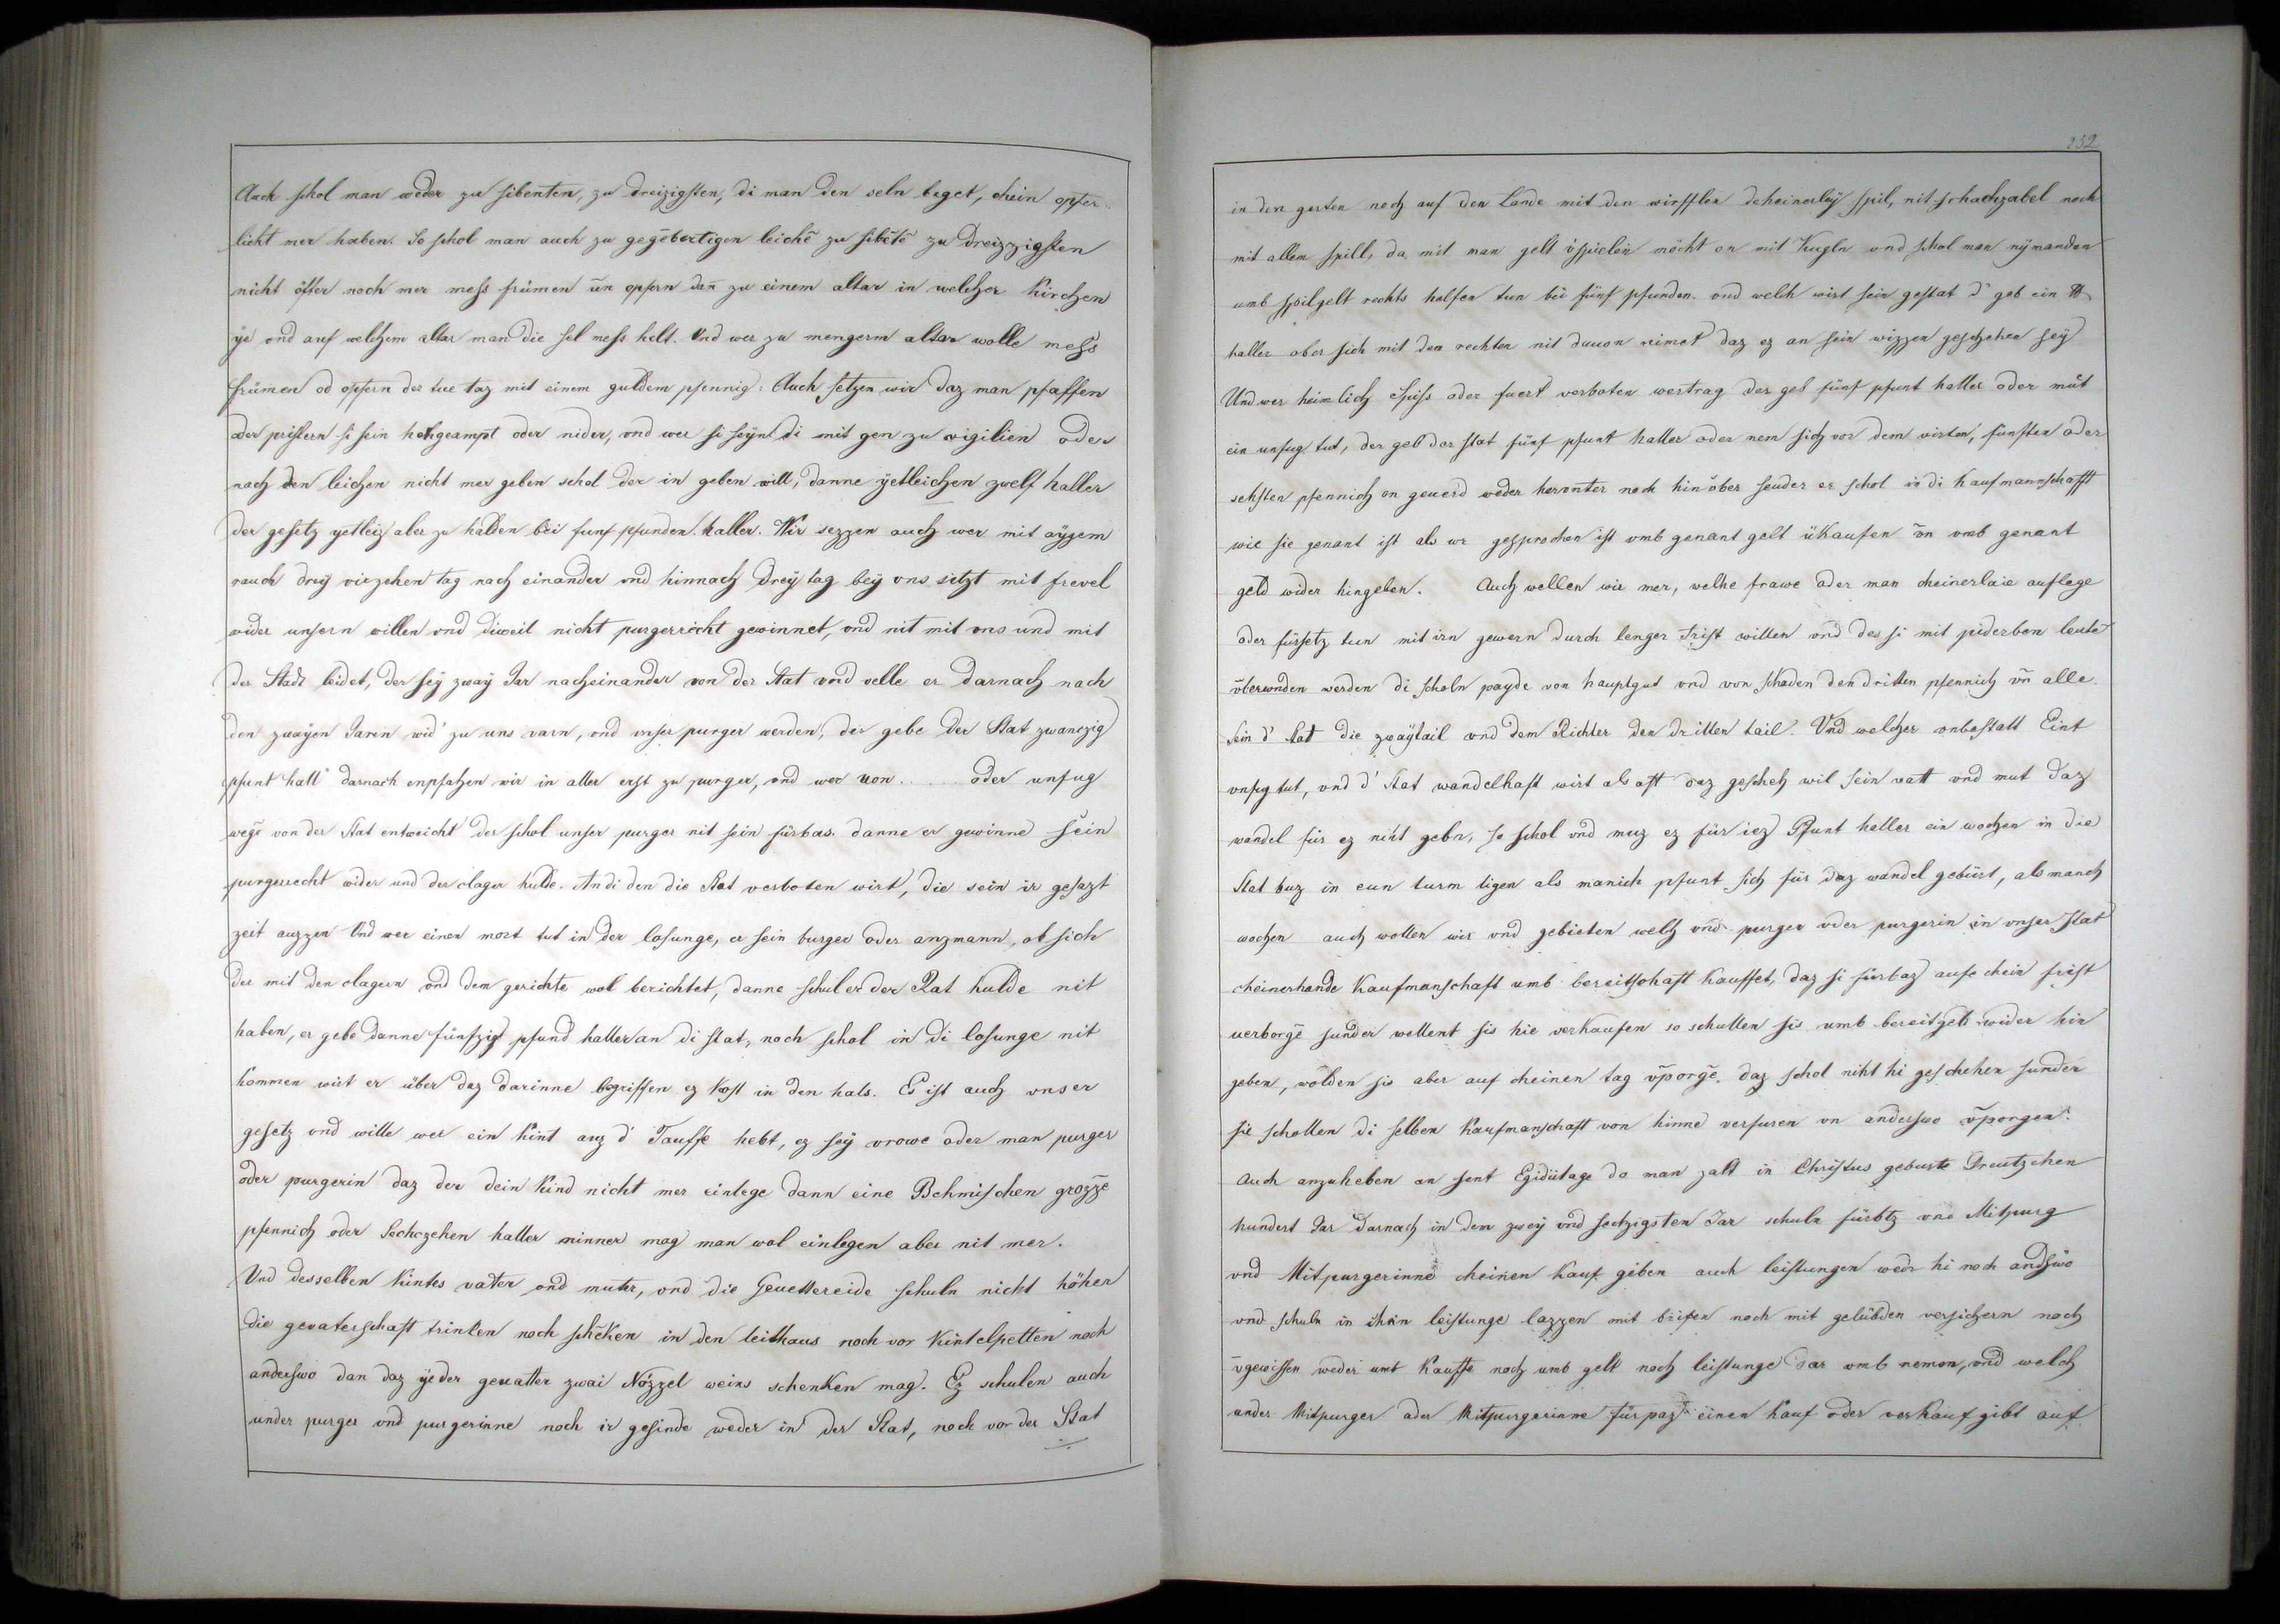 Auch schol man weder zu sibenten, zu dreizigsten, di man den seln beget, chein opfer¬
licht mer haben. So schol man auch zu gegēbertigen leichē zu sibētē zu dreizzigsten
nicht öfter noch mer mess frümen ūn opfern dañ zu einem altar in welcher Kirchen
ye vnd auf welchem altar man die sel mess helt. Vnd wer zu mengerm altar wolle mess
frümen od opfern der tue taz mit einem guldem pfennig: Auch setzen wir daz man pfaffen
oder pristern si sein hohgeampt oder nider, vnd wer si seyn di mit gen zu vigilien oder
nach den leichen nicht mer geben schol der in geben will, danne yetleichen zwelf haller
der gesetz yetleiz aber zu halden bei funf pfunden haller. Wir sezzen auch wer mit aygem
rauch drey virzehen tag nach einander vnd hinnach drey tag bey vns sitzt mit frevel
wider unsern willen vnd dieweil nicht purgerrecht gewinnet, vnd nit mit vns und mit
der Stadt leidet, der sey zway Jar nacheinander von der Stat vnd velle er darnach nach
den zwayen Jaren wid' zu uns varn, vnd vnser purger werden, der gebe der Stat zwanczig
pfunt hall' darnach enpfahen wir in aller erst zu purger, vnd wer von . . . . oder unfug
wegē von der Stat entweicht der schol unser purger nit sein fürbas danne er gewinne sein
purgerrecht wider und der clager hulde. An di den die Stat verboten wirt, die sein ir gesazt
zeit auzzen Vnd wer einen mort tut in der losunge, er sein burger oder auzmann, ob sich
der mit den clagern vnd dem gerichte wol berichtet, danne schul er der Rat hulde nit
haben, er gebe danne fünfzig pfund haller an di stat, noch schol in di losunge nit
kommen wirt er über daz darinne begriffen ez kost in den hals. Es ist auch vnser
gesetz vnd wille wer ein kint auz d' Tauffe hebt, ez sey vrowe oder man purger
oder purgerin daz der dein Kind nicht mer einlege dann eine Behmischen grozze
pfennich oder Sechczehen haller minner mag man wol einlegen aber nit mer.
Vnd desselben Kintes vater vnd muter, vnd die Geuettereide schuln nicht höher
die gevaterschaft trinken noch schēken in den leithaus noch vor kintelpetten noch
anderswo dan daz yeder geuatter zwai Nözzel weins schenken mag. Ez schulen auch
under purger vnd purgerinne noch ir gesinde weder in der Stat, noch vor der Stat
252
in den gerten noch auf den Lande mit den wirfflen deheinerley spil, nit schachzabel noch
mit allem spill, da mit man gelt v̄spielen möcht on mit Kugln vnd schol man nymanden
umb spilgelt rechts helfen tun bei fünf pfunden. vnd welch wirt sein gestat d' geb ein ℔
haller ober sich mit dem rechten nit dauon nimet daz ez an sein wizzen geschehen sey
Und wer heimlich Spiss oder fuert verboten wertrag der geb fünf pfunt haller oder müt
ein unfug tut, der geb der stat fünf pfunt haller oder nem sich vor dem virten, fünften oder
sehsten pfennich on geuerd weder herunter noch hinüber sunder er schol in di Kaufmannschafft
wie sie genant ist als vor gesprochen ist vmb genant gelt ükaufen v̄n vmb genant
geld wider hingeben. Auch wellen wir mer, welhe frawe ader man cheinerlaie auflege
oder fürsetz tun mit irn gewern durch lenger frist willen vnd des si mit piderben leute
v̄berwnden werden di scholn payde von hauptgut vnd von schaden den dritten pfennich v̄n alle
sein d' stat die zwaytail vnd dem Richter den dritten tail. Vnd welcher onbestatt Eint
vnfug tut, vnd d' Stat wandelhaft wirt als oft daz gescheh wil sein vatt vnd mut daz
wandel für ez niht gebn, so schol vnd muz ez für iez Pfunt heller ein wochen in die
Stat buz in eun turm ligen als manich pfunt sich für daz wandel gebürt, als manch
wochen auch wollen wir vnd gebieten welch vnd purger oder purgerin in vnser Stat
cheinerhande Kaufmanschaft umb bereitschaft kauffet, daz si fürbaz aufe chein frist
verborgē sunder wellent sis hie verkaufen so schullen sis umb bereitgelt wider hin
geben, wölden sis aber auf cheinen tag v̄porgē, daz schol niht hi geschehen sunder
sie schollen di selben Kaufmanschaft von hinne verfuren vn anderswo v̄porgen.
Auch anzuheben an sent Egidiitage do man zalt in Christus geburte Dreutzehen
hundert Jar darnach in dem zwey vnd sechzigsten Jar schuln fürbtz vns Mitpurg
vnd Mitpurgerinne cheinen kauf geben auch leistungen wedr hi noch andswo
vnd schuln in ihrin leistunge lazzen mit brifen noch mit gelübden versichern noch
v̄gewissen weder umb Kauffe noch umb gelt noch leistunge dar vmb nemen, vnd welch
under Mitpurger ader Mitpurgerinne fürpaz einen Kauf oder verkauf gibt auf